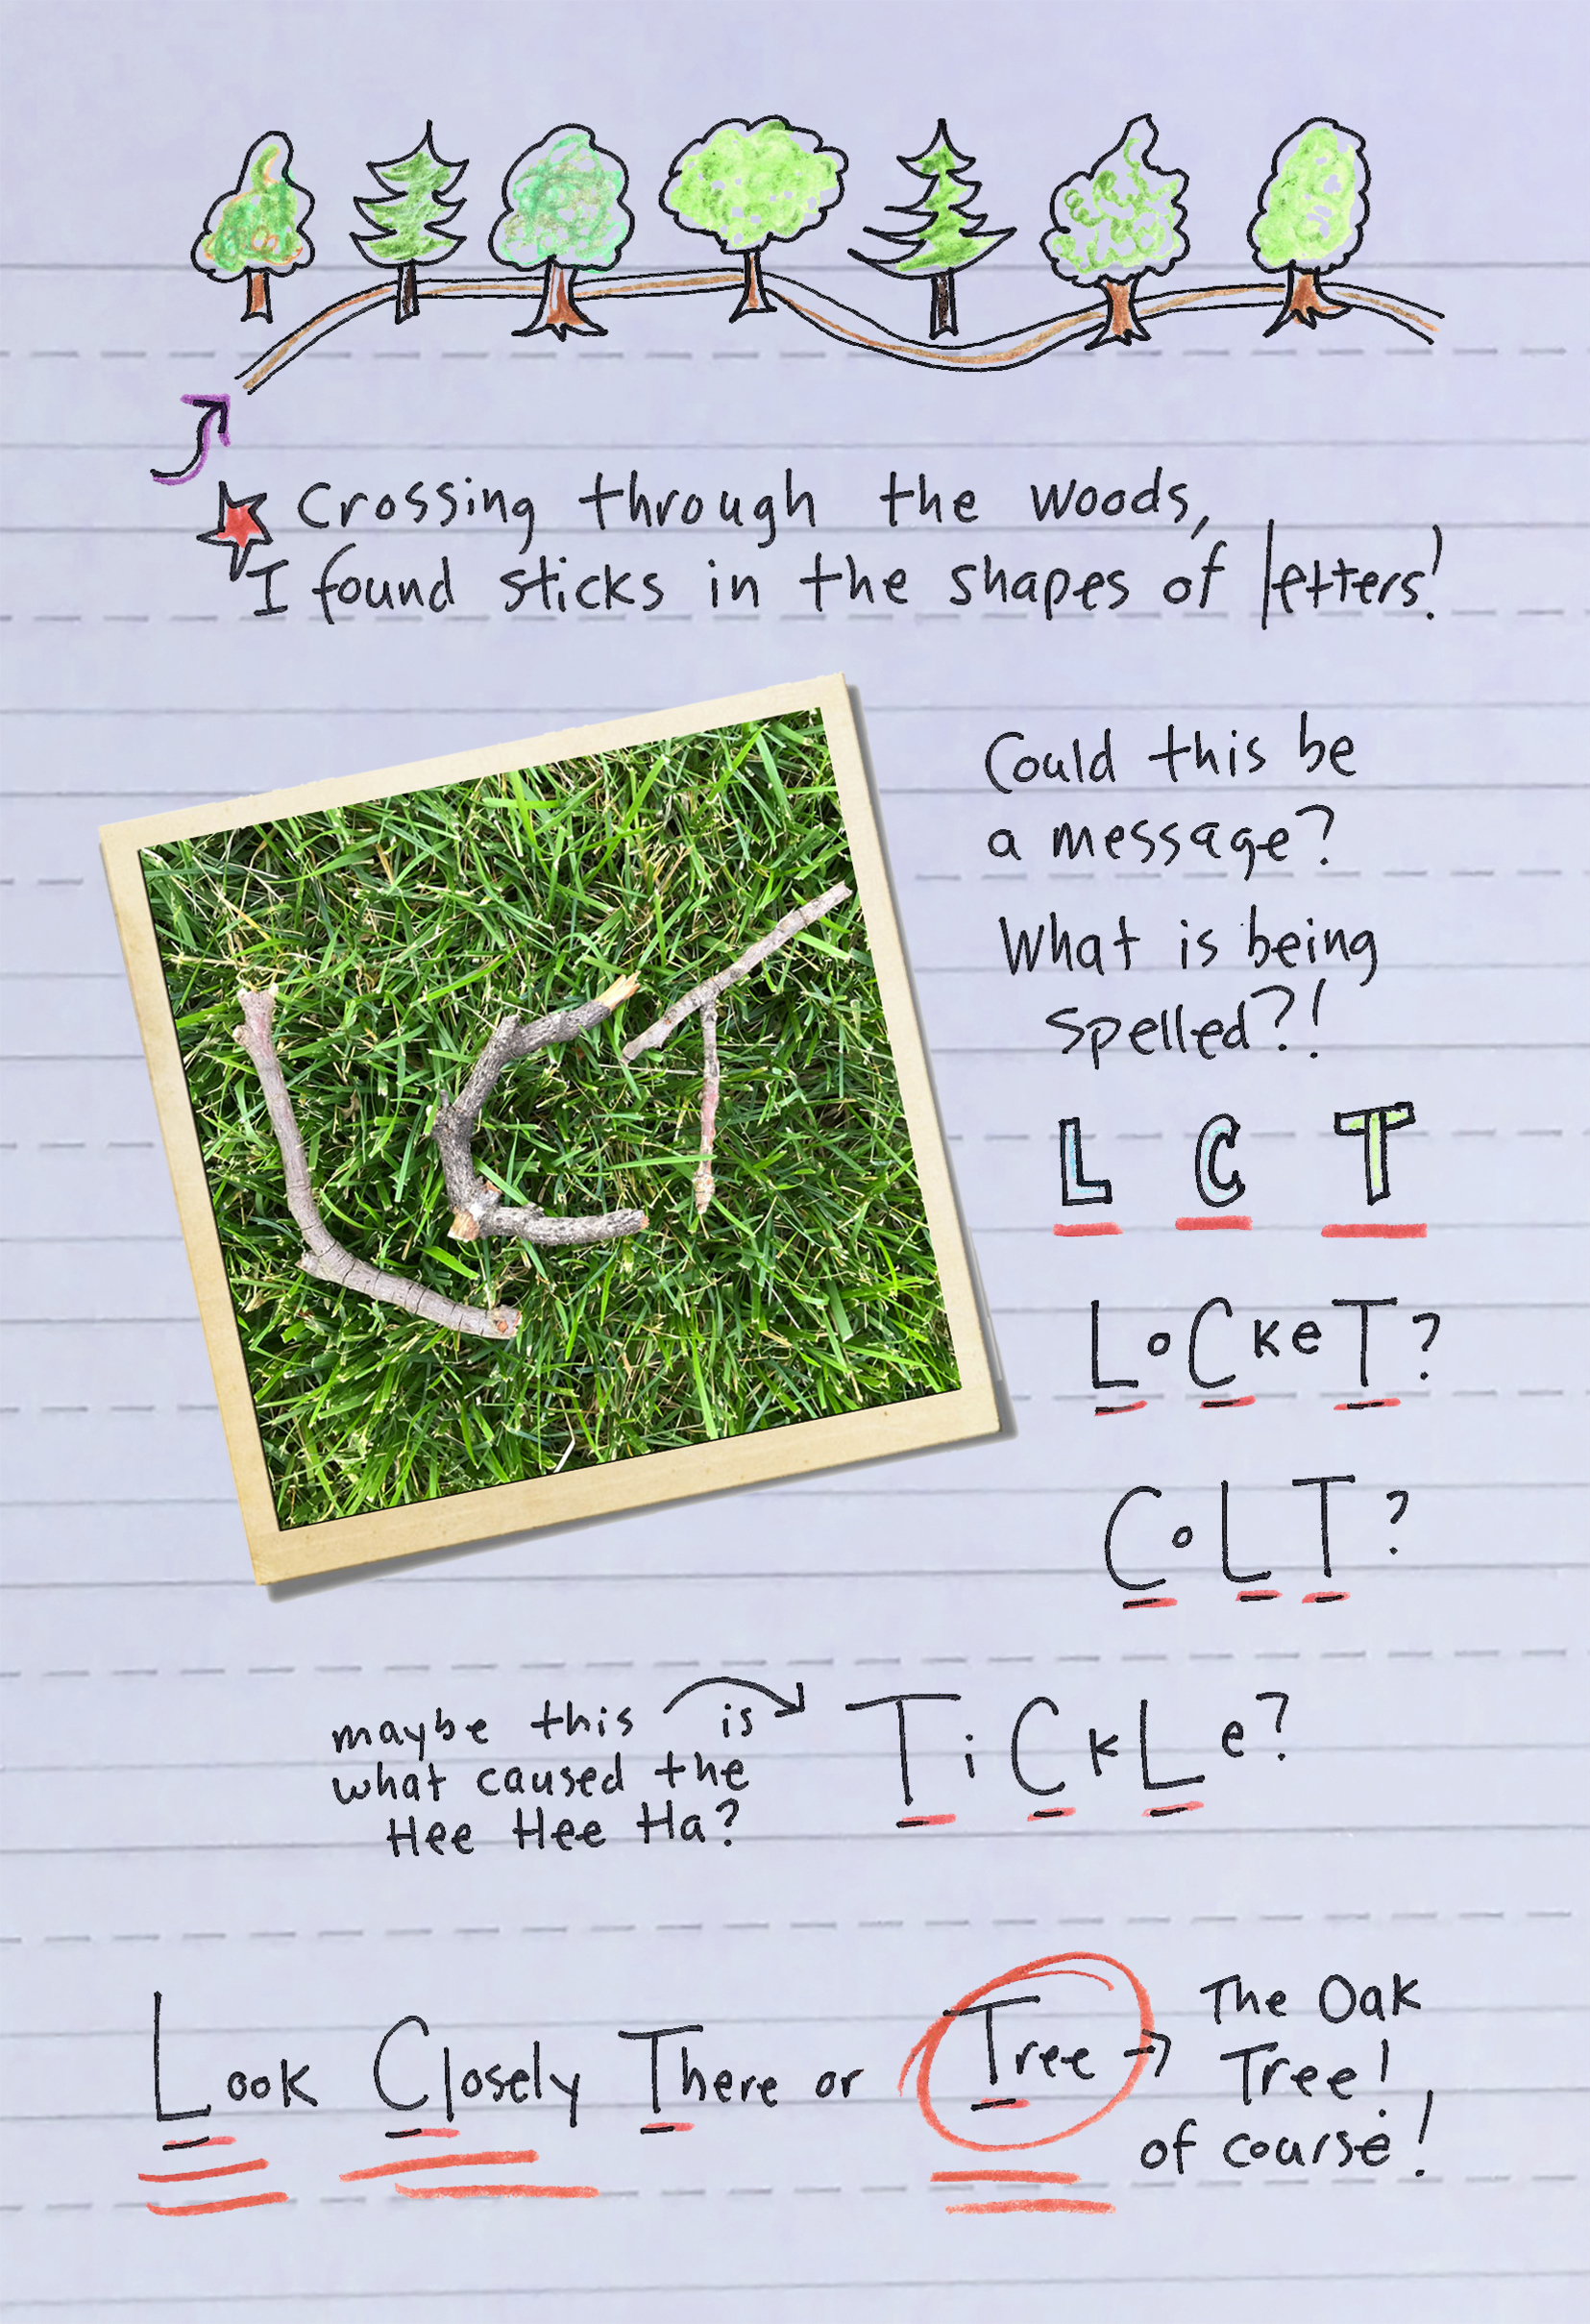 Crossing through the woods,
I found sticks in the shapes of letters!
Could this be
a message?
What is being
spelled?!
L C T
LoCkeT?
CoLT?
maybe this is
what caused the
Hee Hee Ha?
TiCkLe?
Look Closely There or Tree →
The Oak
Tree!
of course!